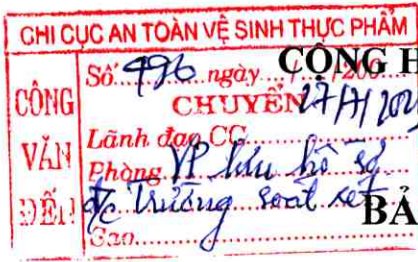 CHI CỤC AN TOÀN VỆ SINH THỰC PHẨM
CÔNG VĂN ĐẾN
Số 496 ngày / /200
CỘNG H
CHUYỂN
Lãnh đạo CC
Phòng VP lưu hồ sơ
đ/c Trường soát xét
BẢ